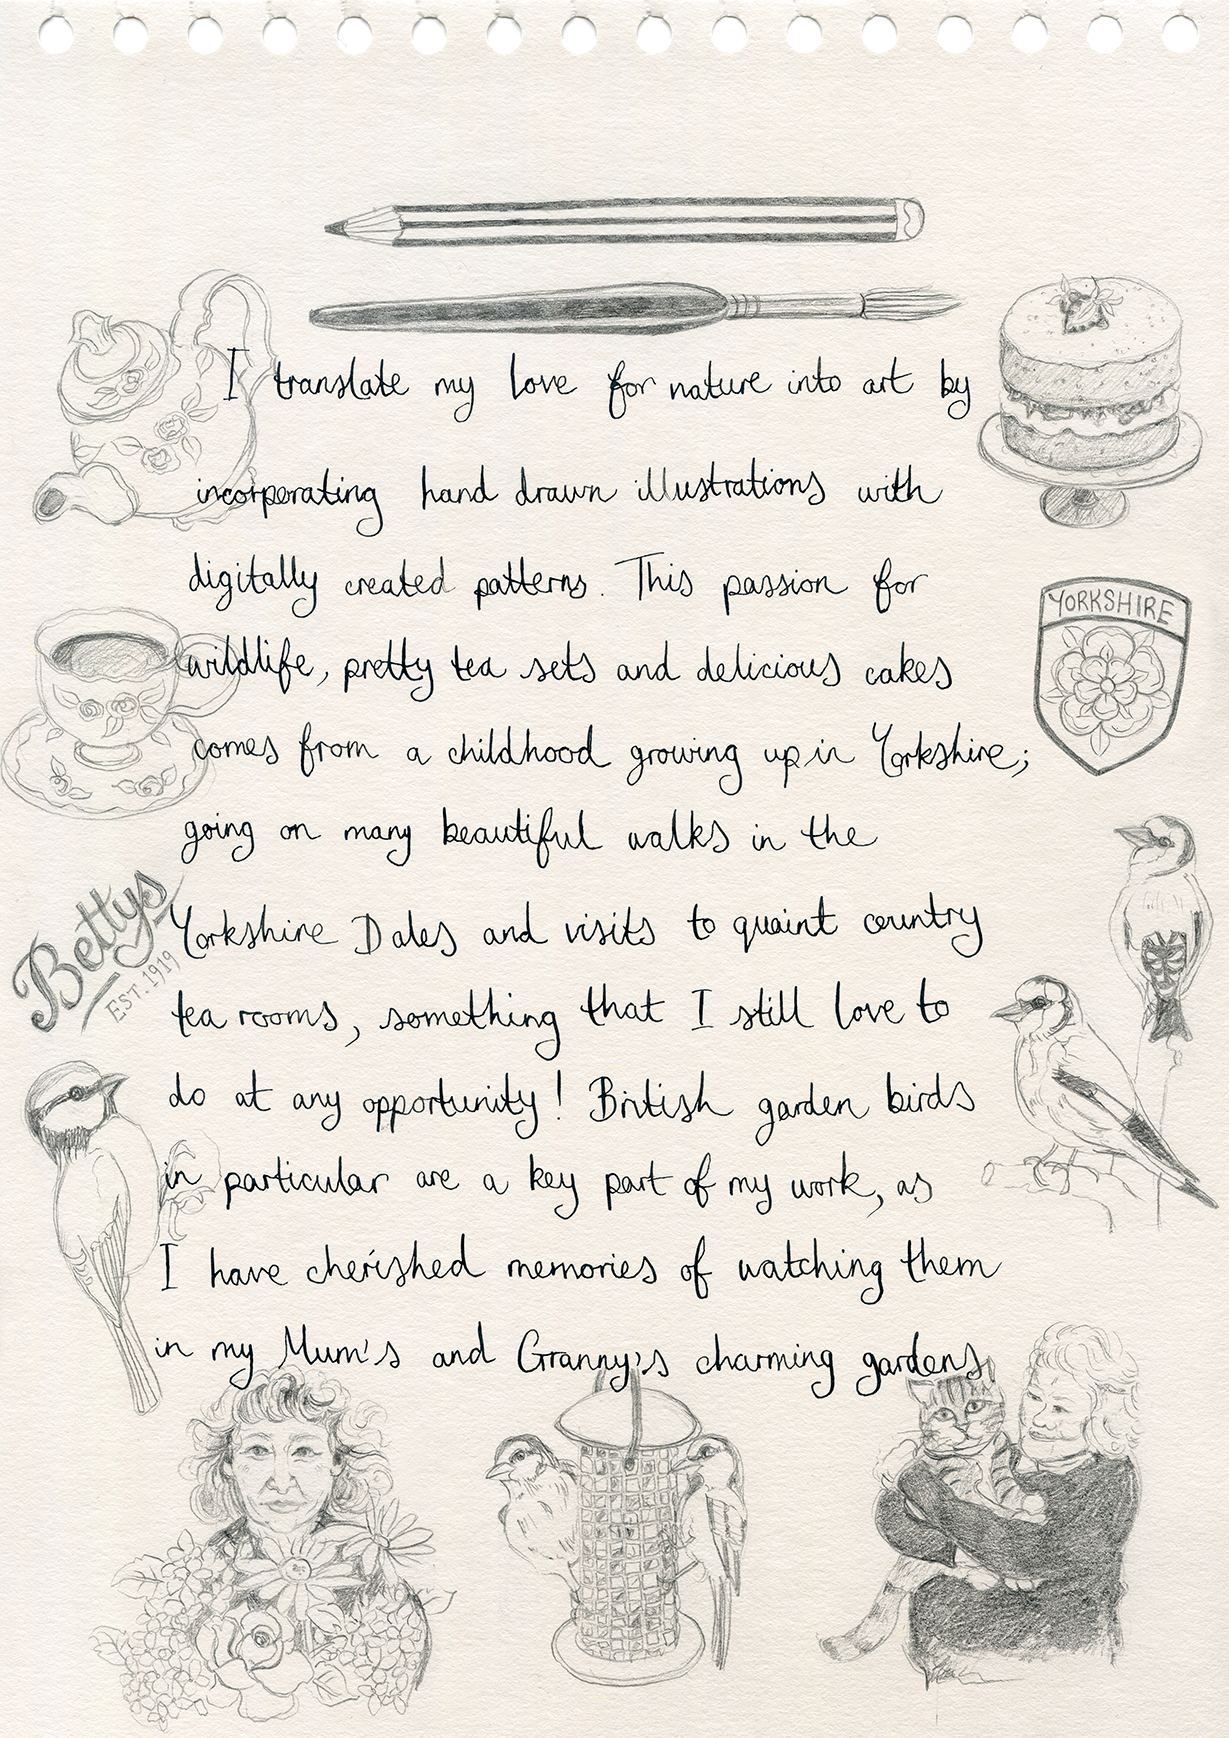 I translate my love for nature into art by
incorporating hand drawn illustrations with
digitally created patterns. This passion for
YORKSHIRE
wildlife, pretty tea sets and delicious cakes
comes from a childhood growing up in Yorkshire;
going on many beautiful walks in the
Bettys
EST. 1919
Yorkshire Dales and visits to quaint country
tea rooms, something that I still love to
do at any opportunity! British garden birds
in particular are a key part of my work, as
I have cherished memories of watching them
in my Mum's and Granny's charming gardens